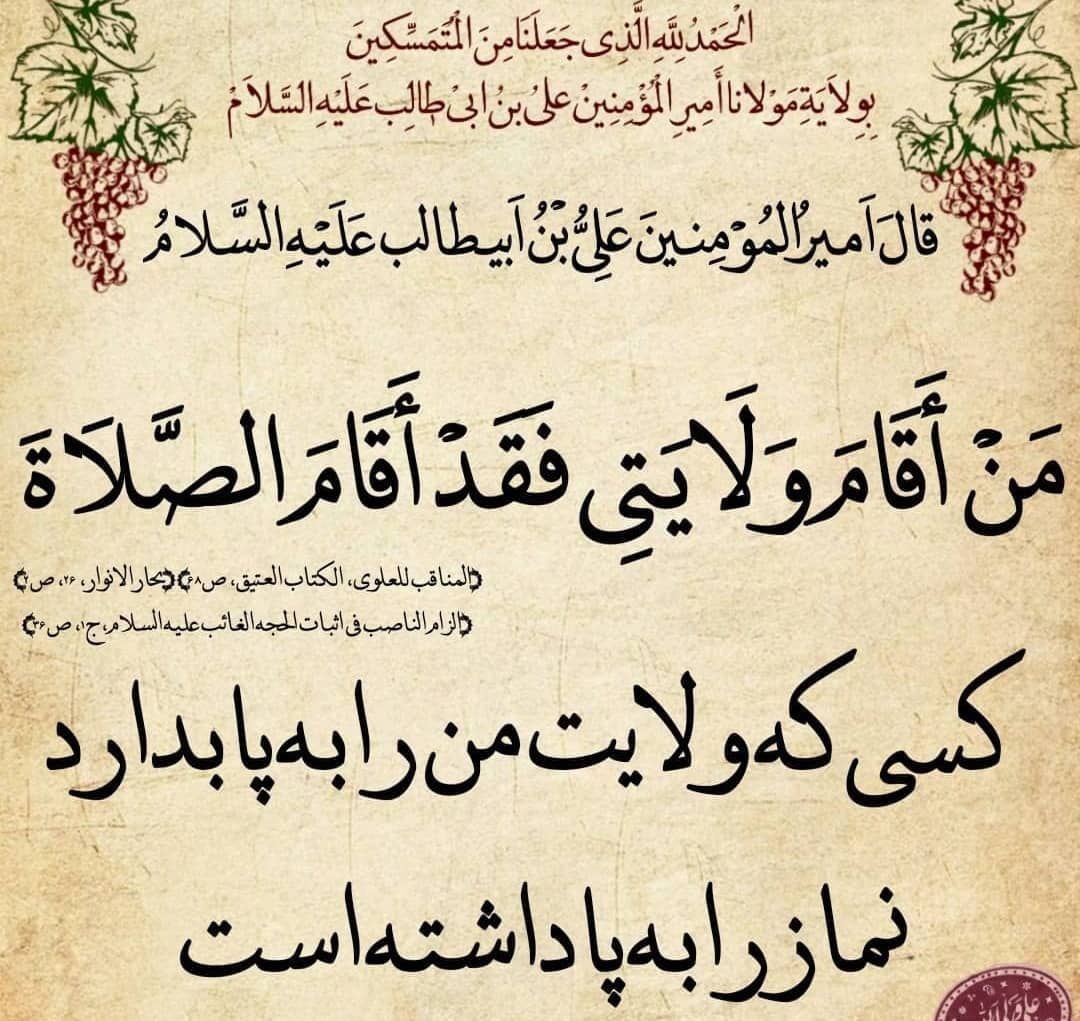 الْحَمْدُ لِلَّهِ الَّذِی جَعَلَنَا مِنَ الْمُتَمَسِّکِینَ
بِوِلاَیَةِ مَوْلانا أَمِیرِ الْمُؤْمِنِیْنَ عَلیُ بنُ ابیْ طالِب عَلَیْهِ السَّلاَمْ
قالَ اَمیرُالمُوْمِنینَ عَلِیُّ بْنُ اَبیطالب عَلَیْهِ السَّلامُ
مَنْ أَقَامَ وَلَایَتِي فَقَدْ أَقَامَ الصَّلَاةَ
﴿المناقب للعلوی، الکتاب العتیق، ص۶۸﴾ ﴿بحارالانوار، ۲۶، ص۲﴾
﴿الزام الناصب فی اثبات الحجه الغائب علیه السلام، ج۱، ص۳۶﴾
کسی که ولایت من را به پا بدارد
نماز را به پا داشته است